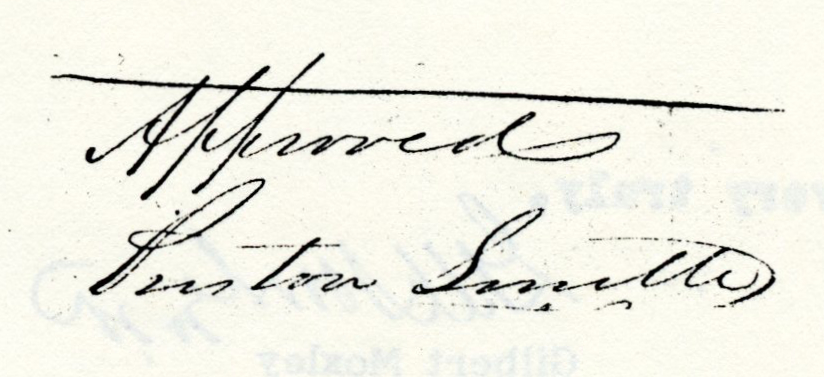 Approved
very truly,
Preston Smith
Gilbert Moxley